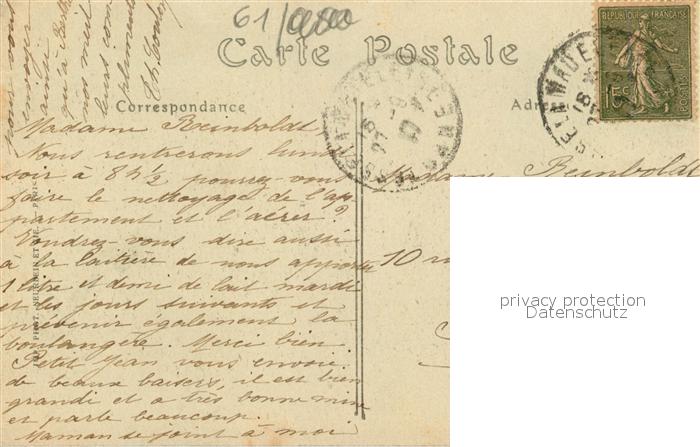 61/
Carte Postale
Correspondance
Adre
REPUBLIQUE FRANÇAISE
15c
POSTES
Madame Reinboldt,
Nous rentrerons lundi
soir à 8h 1/2 pourrez-vous
faire le nettoyage de l'ap-
partement et l'aérer?
Voudrez-vous dire aussi
à la laitière de nous apporter
1 litre et demi de lait mardi
et les jours suivants et
prévenir également la
boulangère. Merci bien.
Petit Jean vous envoie
de beaux baisers, il est bien
grandi et a très bonne mine
et parle beaucoup.
Maman se joint à moi
pour vous
envoyer
ainsi
qu'à Berthe
nos meil-
leurs com-
pliments
Madame Reinboldt
10 ru
privacy protection
Datenschutz